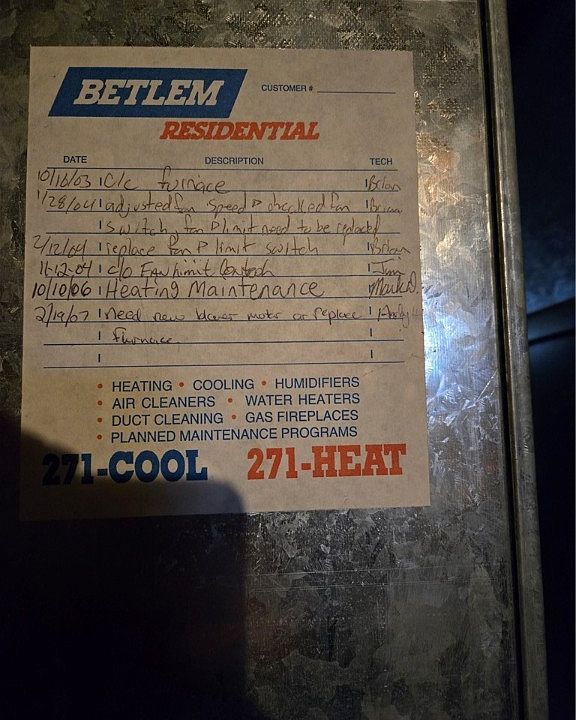 BETLEM
CUSTOMER #
RESIDENTIAL
DATE DESCRIPTION TECH
10/16/03 C/c furnace Brian
1/28/04 adjusted fan speed & checked fan Brian
switch, fan & limit need to be replaced
2/12/04 replace fan & limit switch Brian
11-12-04 c/o Fan/limit Jim
10/10/06 Heating Maintenance
2/19/07 need new blower motor or replace Andy
furnace
• HEATING • COOLING • HUMIDIFIERS
• AIR CLEANERS • WATER HEATERS
• DUCT CLEANING • GAS FIREPLACES
• PLANNED MAINTENANCE PROGRAMS
271-COOL 271-HEAT